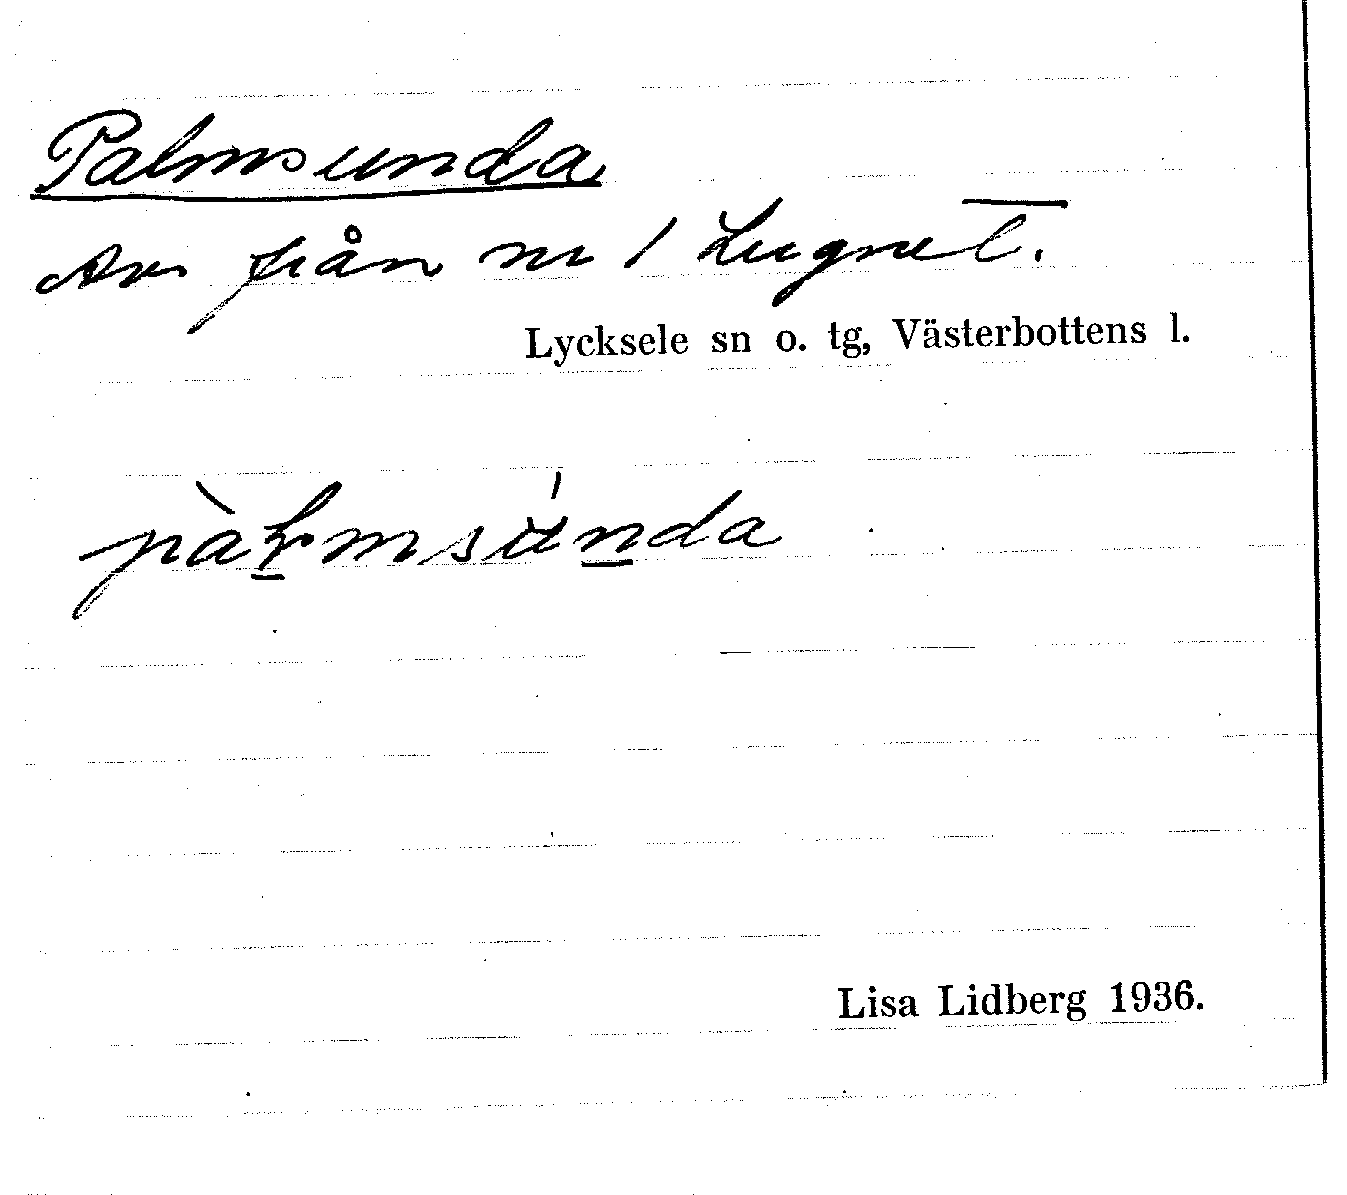 Palmsunda
Av från nr 1 Lugnet.
Lycksele sn o. tg, Västerbottens l.
Lisa Lidberg 1936.